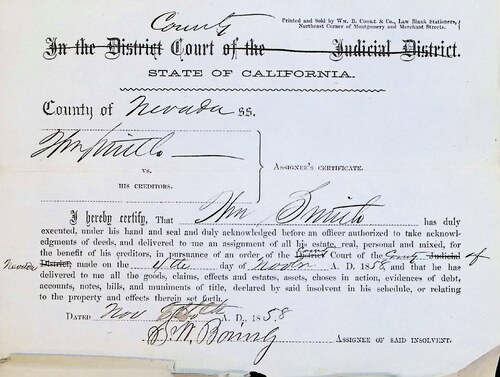 County
Printed and Sold by Wm. B. Cooke & Co., Law Blank Stationers,
Northeast Corner of Montgomery and Merchant Streets.
In the District Court of the Judicial District.
STATE OF CALIFORNIA.
County of Nevada ss.
Wm Smith
vs.
HIS CREDITORS.
ASSIGNEE'S CERTIFICATE.
I hereby certify, That Wm Smith has duly
executed, under his hand and seal and duly acknowledged before an officer authorized to take acknowl-
edgments of deeds, and delivered to me an assignment of all his estate, real, personal and mixed, for
the benefit of his creditors, in pursuance of an order of the District County Court of the County Judicial of
Nevada District, made on the day of A. D. 1858, and that he has
delivered to me all the goods, claims, effects and estates, assets, choses in action, evidences of debt,
accounts, notes, bills, and muniments of title, declared by said insolvent in his schedule, or relating
to the property and effects therein set forth.
DATED Nov A. D., 1858
ASSIGNEE OF SAID INSOLVENT.